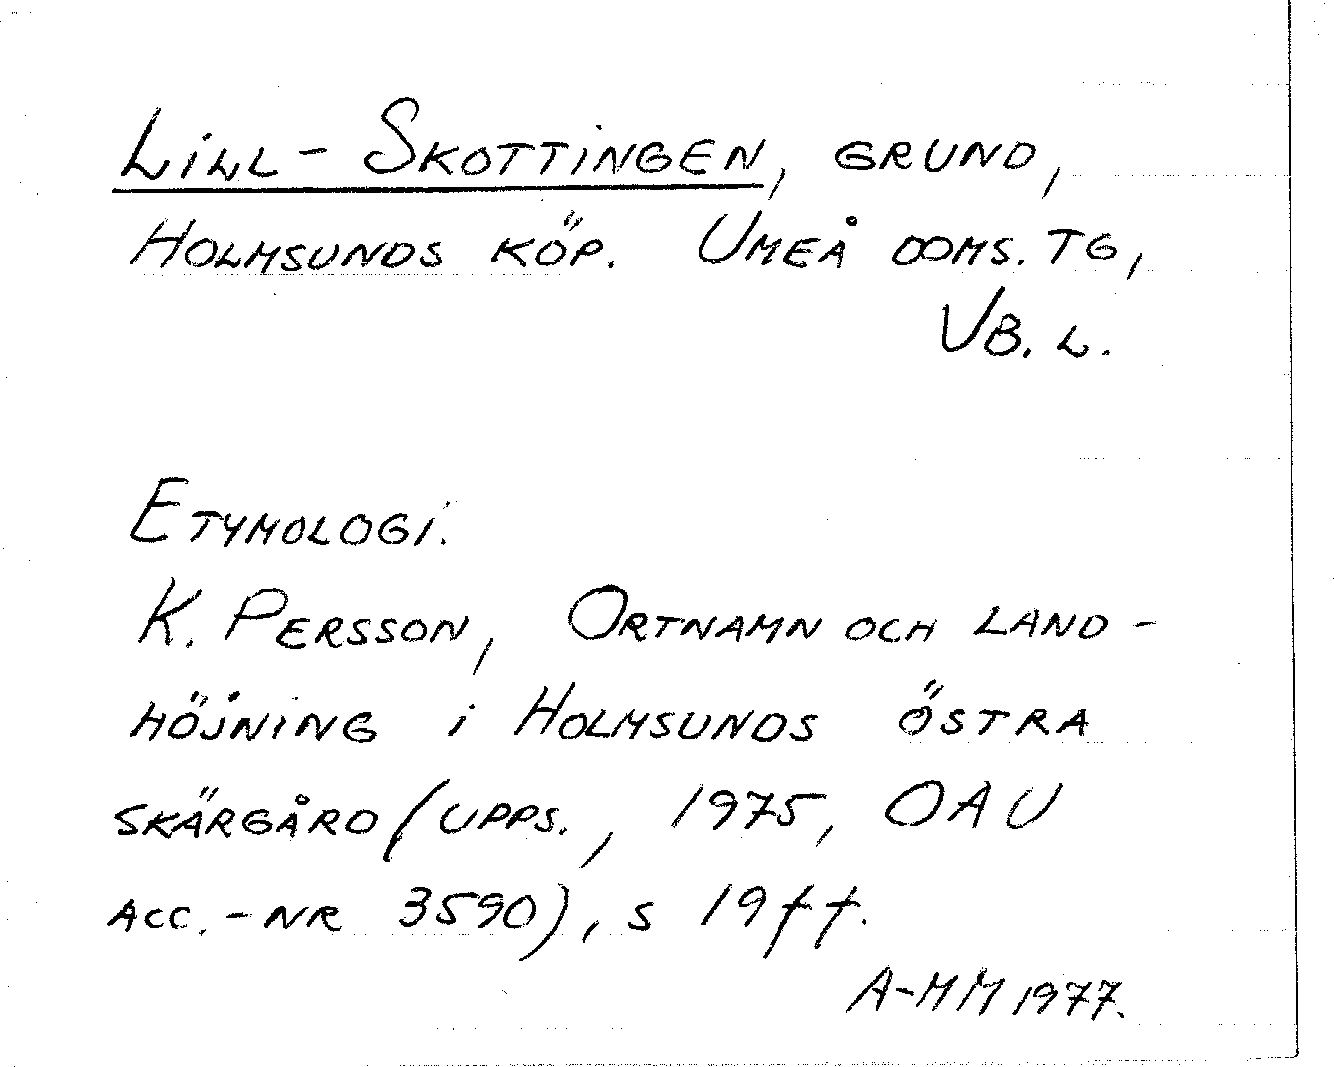 Lill-Skottingen, grund,
Holmsunds köp. Umeå doms. tg,
Vb. l.
Etymologi.
K. Persson, Ortnamn och land-
höjning i Holmsunds östra
skärgård (Upps., 1975, OAU
acc.-nr 3590), s 19ff.
A-MM 1977.